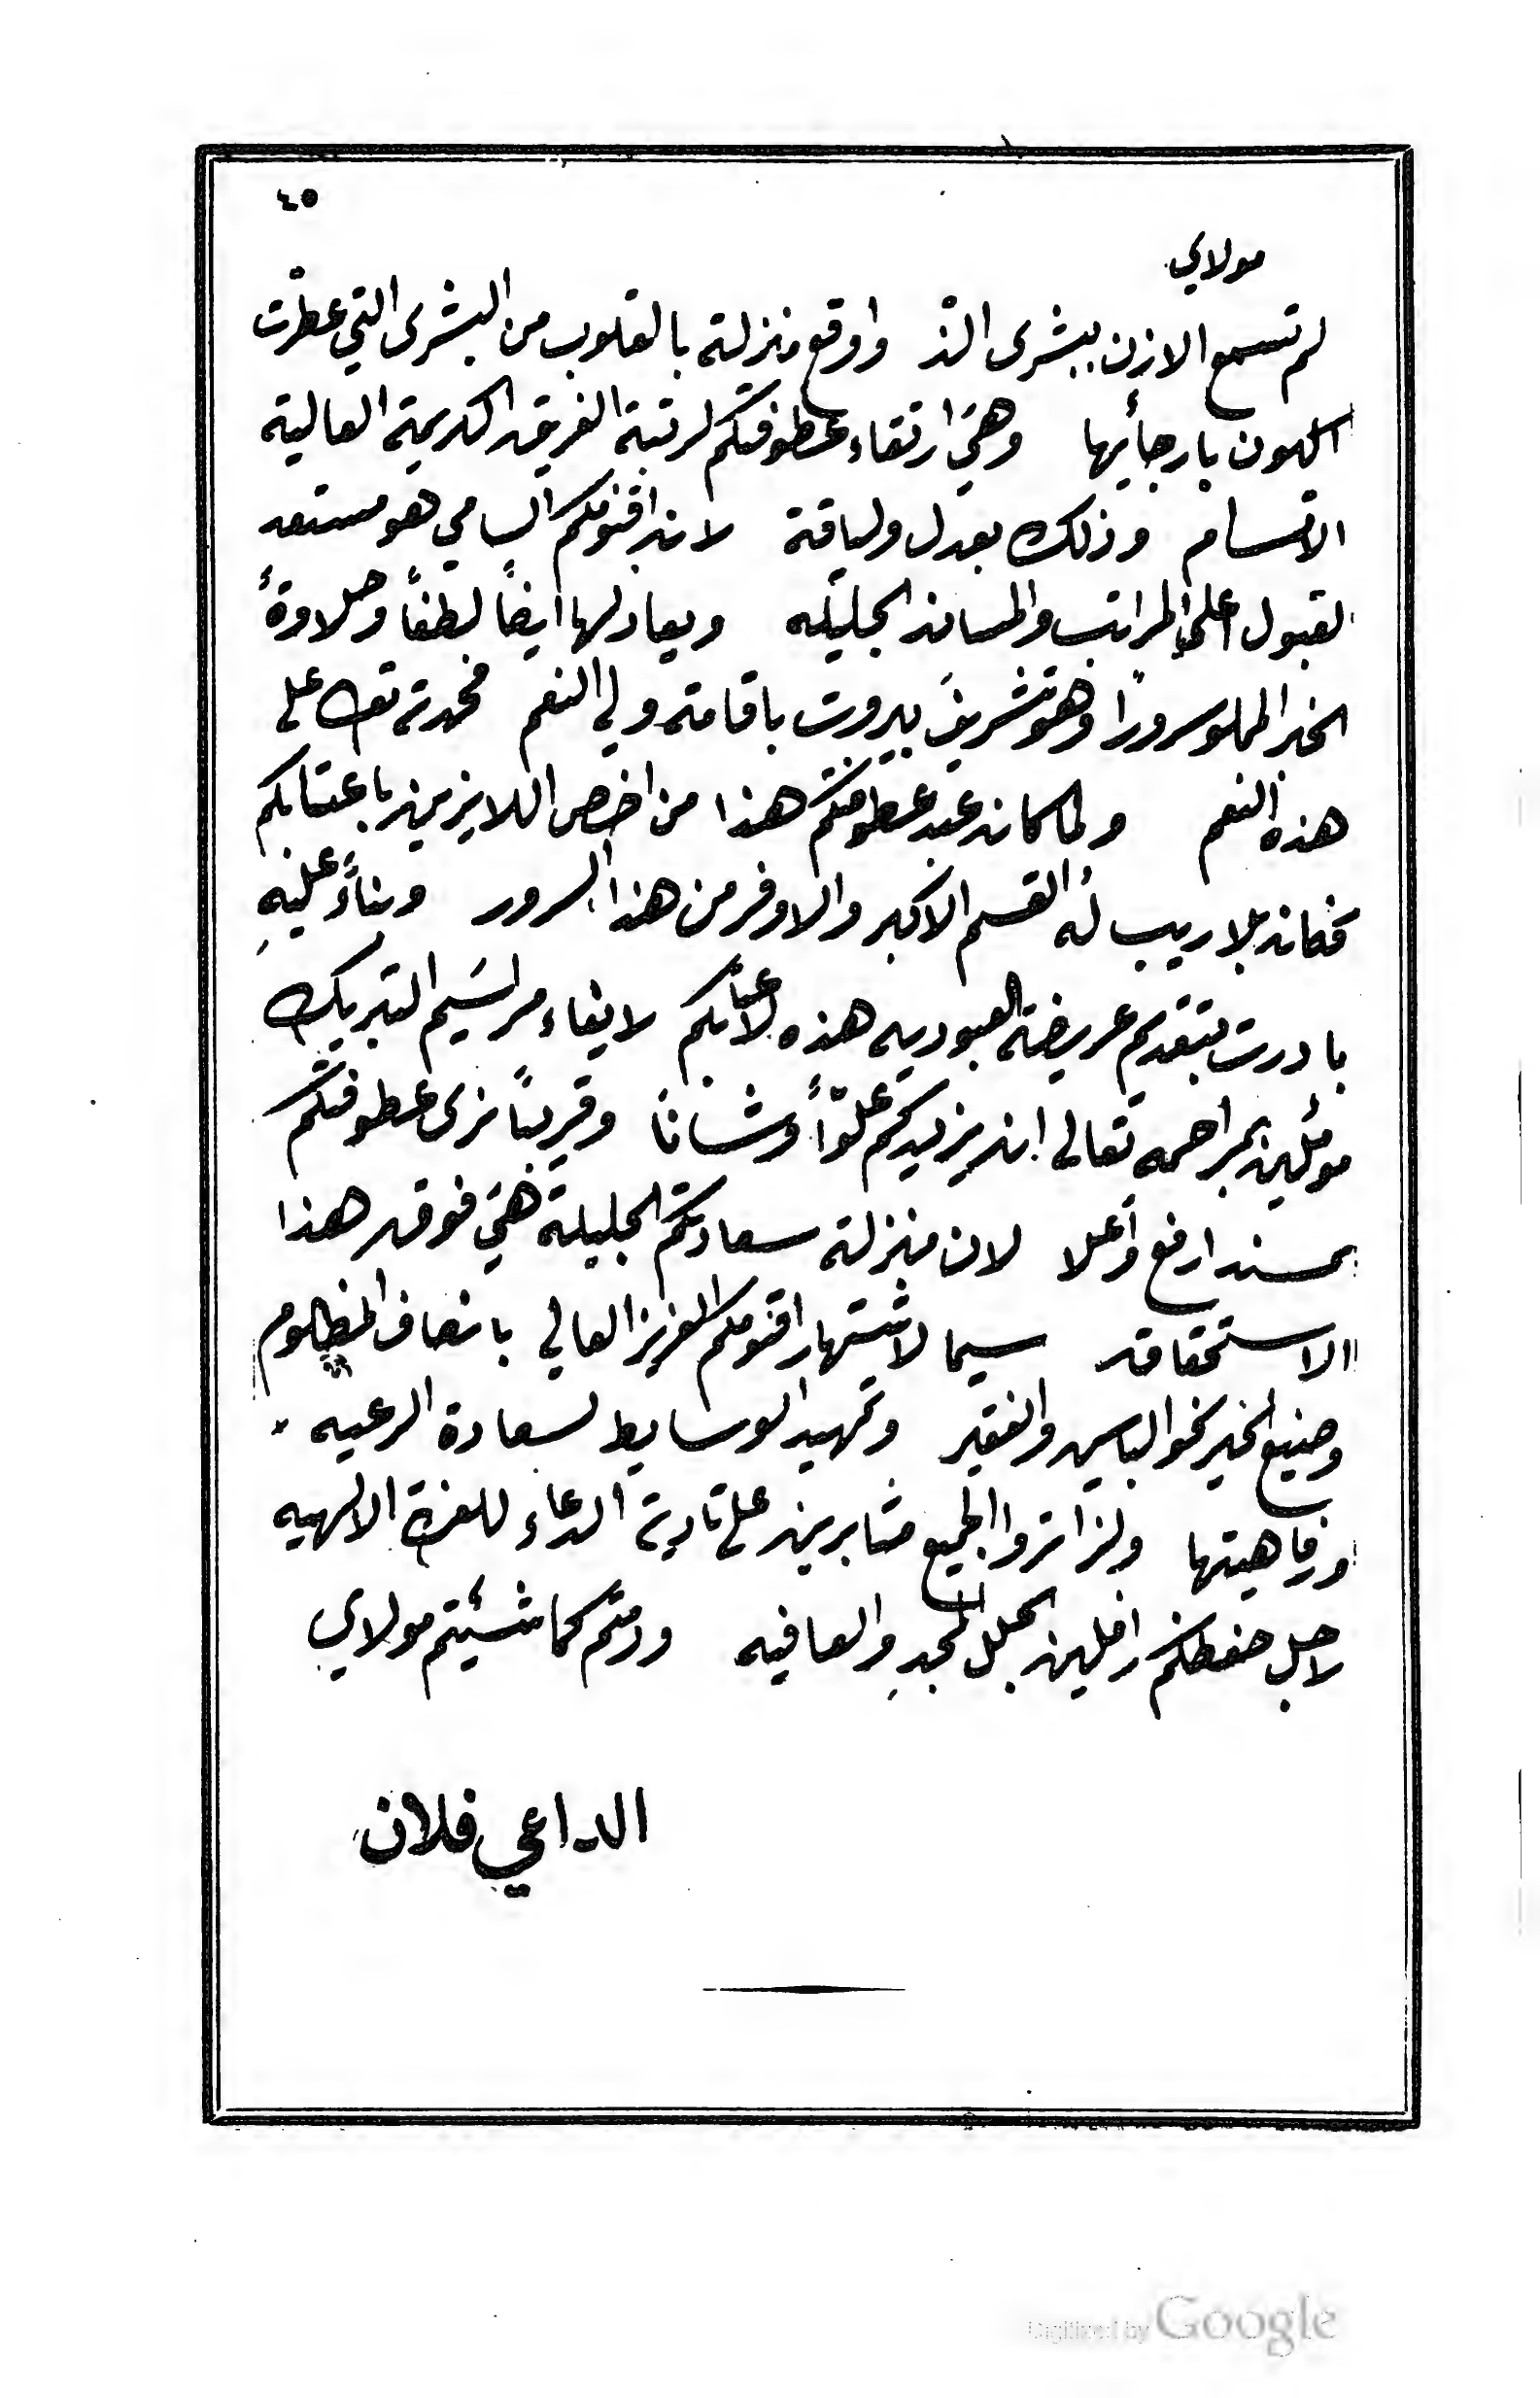 ٤٥
مولاي
لم تسمع الاذن ببشرى الذّ واوقع منزلة بالقلوب من البشرى التي عطّرت
الكون بارجأيها وهي ارتقاء عطوفتكم لرتبة الفريق الكريمة العالية
الاتسام وذلك بعدل ولياقة لان اقنومكم السامي هو مستعد
لقبول اعلى المراتب والمساند الجليله ويعادلها ايضاً لطفاً وحلاوةً
الخبر المملو سروراً وهو تشريف بيروت باقامته ولي النعم فحمدته تعالى على
هذه النعم ولما كان عبد عطوفتكم هذا من اخص اللايذين باعتابكم
فكان بلا ريب لهُ القسم الاكبر والاوفر من هذا السرور وبناءً عليهِ
بادرت بتقديم عريضة العبوديه هذه لاعتابكم لايفاء مراسيم التبريك
مومّلين بمراحمه تعالى ان يزيدكم علوّاً وشانا وقريباً نرى عطوفتكم
بمسند ارفع وأعلا لان منزلة سعادتكم الجليلة هي فوق هذا
الاستحقاق سيما لاشتهار اقنومكم العزيز العالي بانصاف المظلوم
وصنيع الخير نحو البايس والفقير وتمهيد الوسايط لسعادة الرعيه
ورفاهيتها ولزاتروا الجميع مثابرين على تادية الدعاء للعزة الالهيه
لاجل حفظكم رافلين بحلل المجدِ والعافيه ودمتم كما شئيتم مولاي
الداعي فلان
Digitized by Google